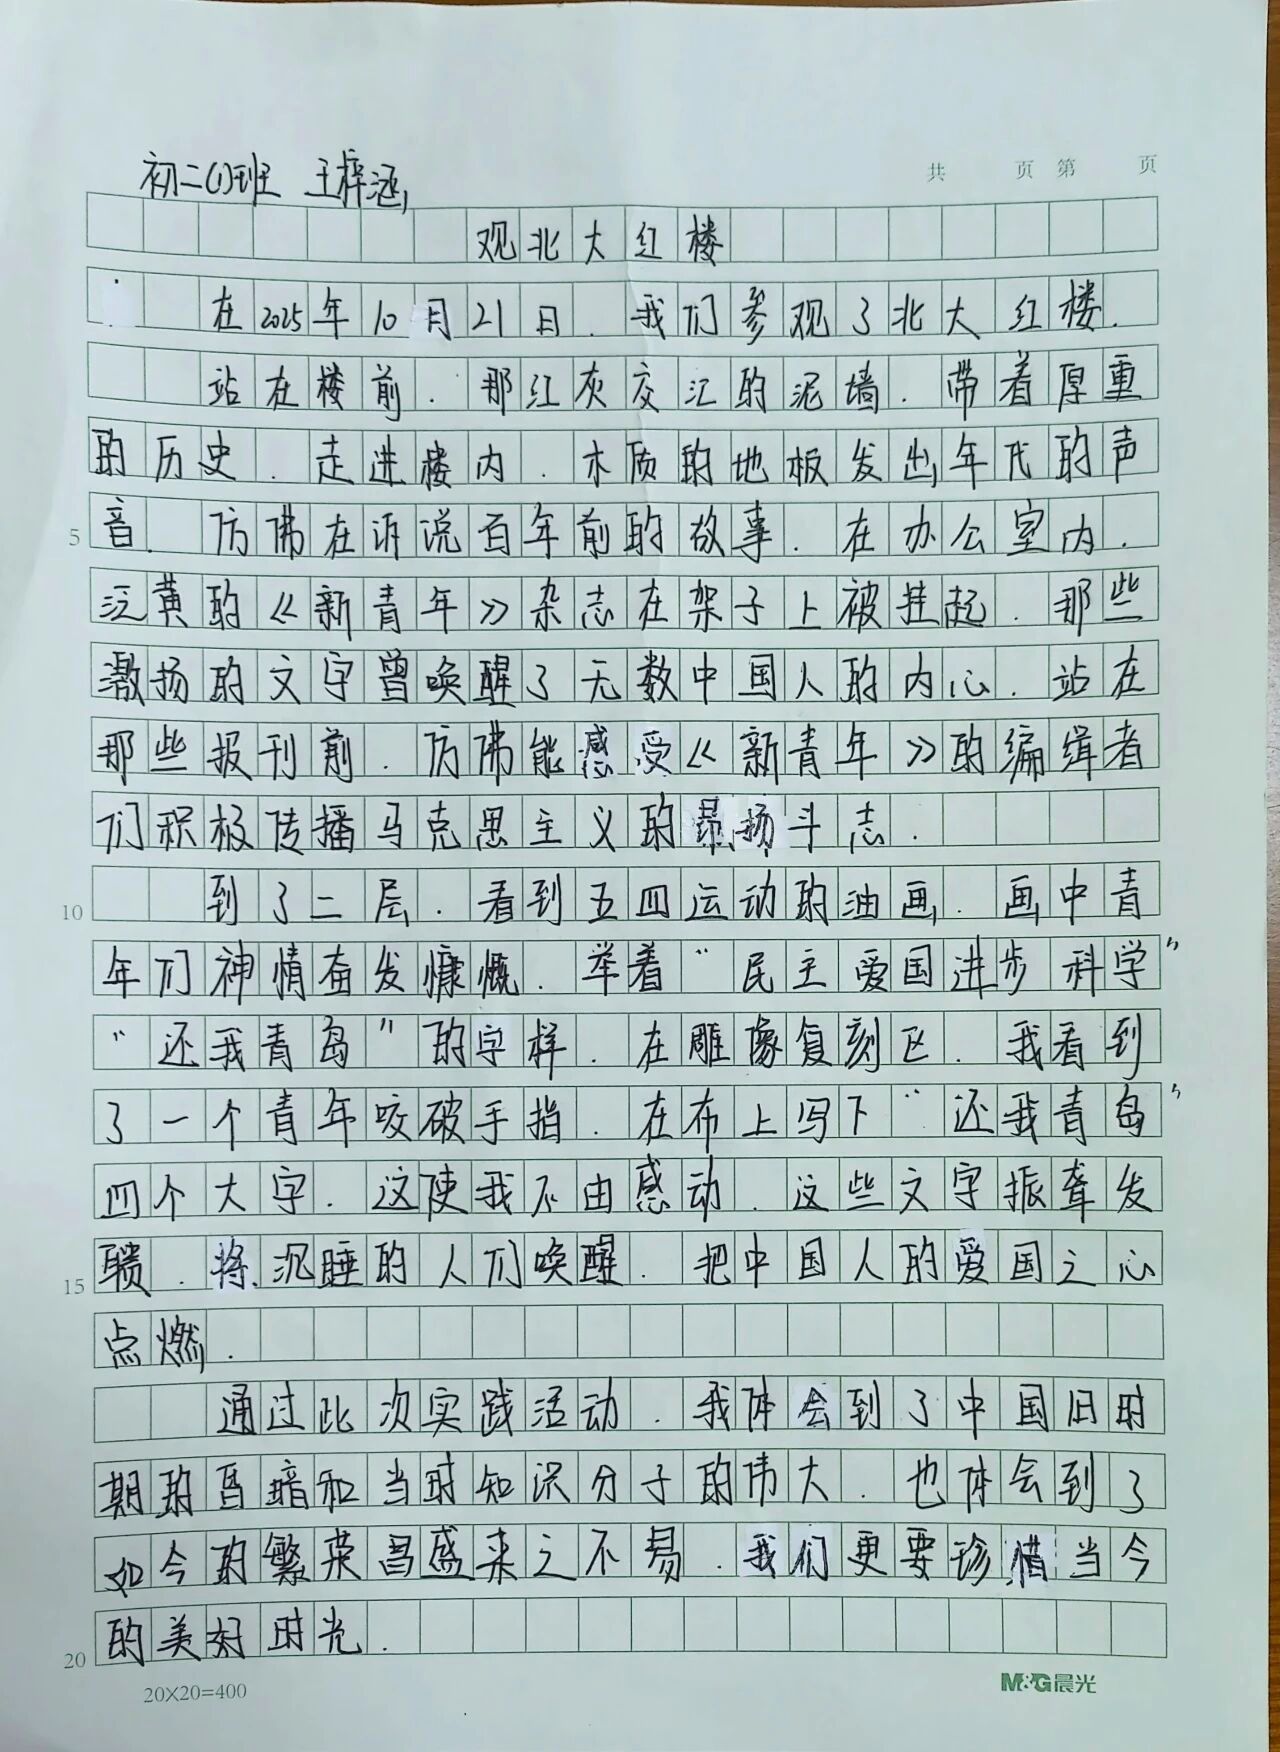 初二(1)班 王梓涵
共 页 第 页
观北大红楼
在2025年10月21日.我们参观了北大红楼.
站在楼前.那红灰交汇的泥墙.带着厚重
的历史.走进楼内.木质的地板发出年代的声
5 音.仿佛在诉说百年前的故事.在办公室内.
泛黄的《新青年》杂志在架子上被挂起.那些
激扬的文字曾唤醒了无数中国人的内心.站在
那些报刊前.仿佛能感受《新青年》的编缉者
们积极传播马克思主义的昂扬斗志.
10 到了二层.看到五四运动的油画.画中青
年们神情奋发慷慨.举着“民主爱国进步科学”
“还我青岛”的字样.在雕像复刻区.我看到
了一个青年咬破手指.在布上写下“还我青岛”
四个大字.这使我不由感动.这些文字振聋发
15 聩.将沉睡的人们唤醒.把中国人的爱国之心
点燃.
通过此次实践活动.我体会到了中国旧时
期的昏暗和当时知识分子的伟大.也体会到了
如今的繁荣昌盛来之不易.我们更要珍惜当今
20 的美好时光.
20×20=400
M&G晨光